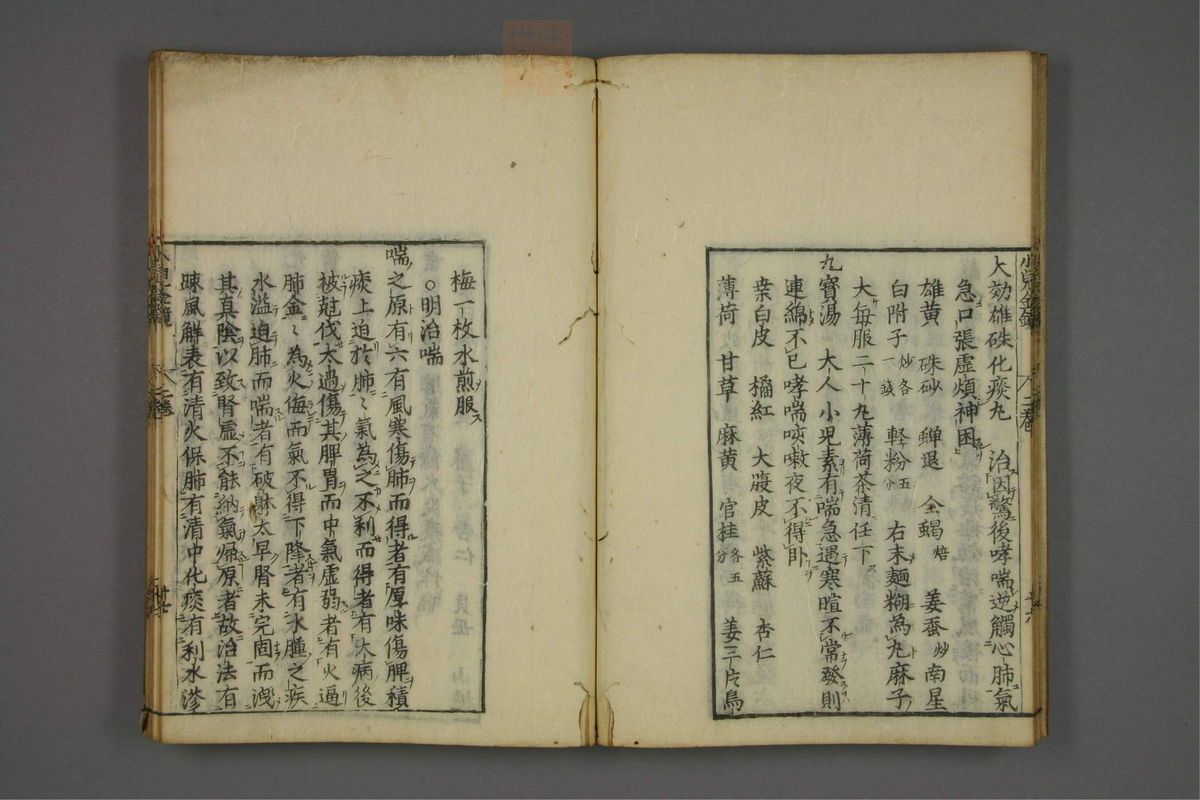 大効雄硃化痰丸　治因驚後哮喘逆觸心肺氣
急口張虛煩神困
雄黄　硃砂　蟬退　全蝎焙　姜蚕炒　南星
白附子炒各一錢　軽粉五分　右末麺糊為丸麻子
大每服二十丸薄荷茶清任下
九寳湯　大人小児素有喘急遇寒暄不常發則
連綿不已哮喘咳嗽夜不得卧
桒白皮　橘紅　大腹皮　紫蘇　杏仁
薄荷　甘草　麻黄　官桂各五分　姜三片烏
梅一枚水煎服
○明治喘
喘之原有六有風寒傷肺而得者有厚味傷脾積
痰上迫於肺〻氣為之不利而得者有大病後
被尅伐太過傷其脾胃而中氣虛弱者有火逼
肺金〻為火侮而氣不得下降者有水腫之疾
水溢迫肺而喘者有破躰太早腎未完固而洩
其真陰以致腎虛不能納氣歸原者故治法有
踈風解表有清火保肺有清中化痰有利水滲